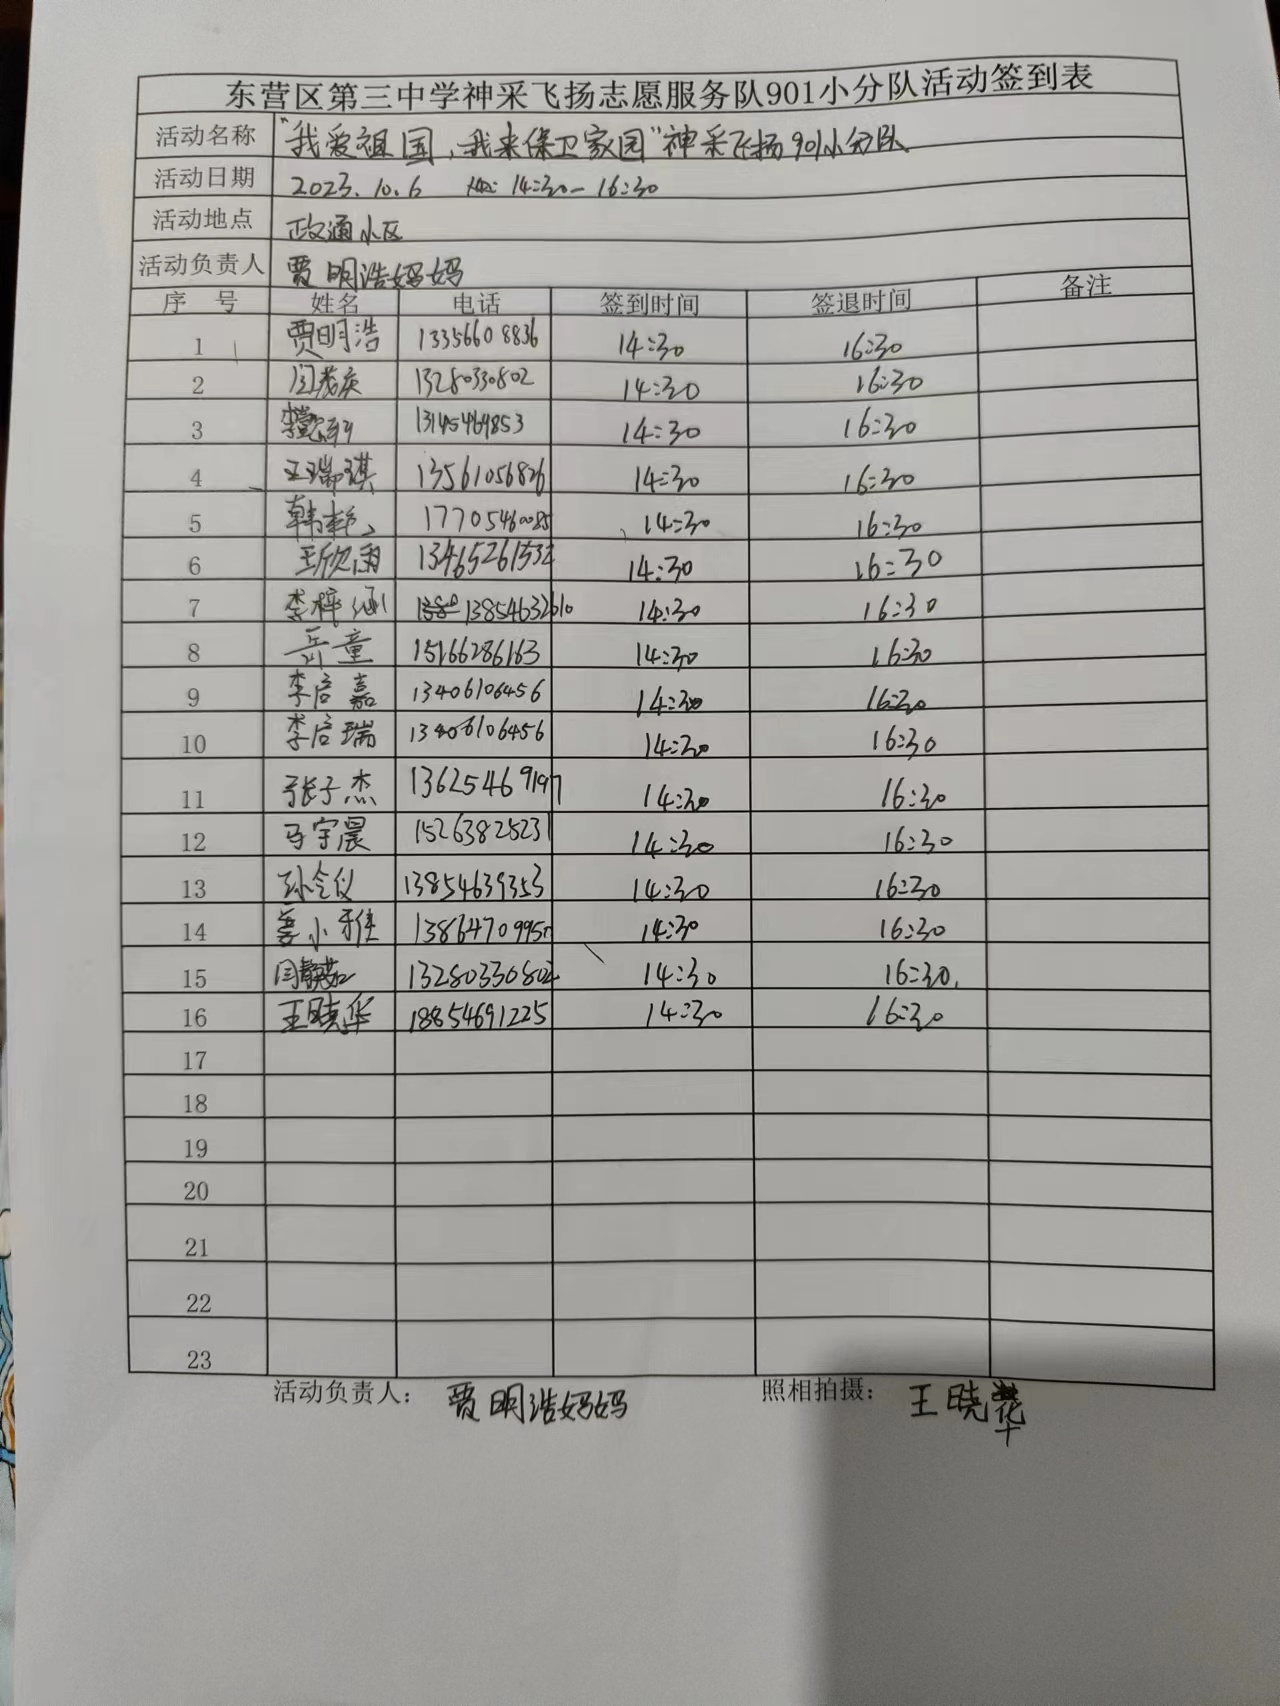 东营区第三中学神采飞扬志愿服务队901小分队活动签到表
活动名称 “我爱祖国,我来保卫家园”神采飞扬901小分队
活动日期 2023.10.6 14:30-16:30
活动地点 政通小区
活动负责人 贾明浩妈妈
序 号 姓名 电话 签到时间 签退时间 备注
1 贾明浩 13356608836 14:30 16:30
2 13280330802 14:30 16:30
3 13145469853 14:30 16:30
4 王瑞琪 13561056826 14:30 16:30
5 17705460085 14:30 16:30
6 王欣雨 13465261532 14:30 16:30
7 李梓涵 13854632610 14:30 16:30
8 岳童 15166286163 14:30 16:30
9 李启嘉 13406106456 14:30 16:30
10 李启瑞 13406106456 14:30 16:30
11 张子杰 13625469197 14:30 16:30
12 马宇晨 15263825231 14:30 16:30
13 孙令仪 13854639353 14:30 16:30
14 姜小雅 14:30 16:30
15 闫静茹 13280330802 14:30 16:30
16 王晓华 18854691225 14:30 16:30
17
18
19
20
21
22
23
活动负责人: 贾明浩妈妈 照相拍摄: 王晓华